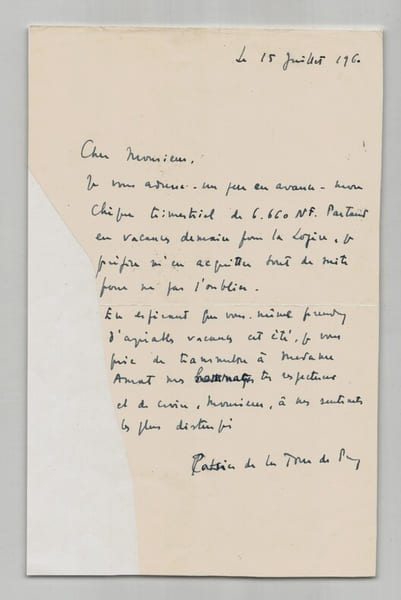 Le 15 Juillet 1960
Cher Monsieur,
Je vous adresse - un peu en avance - mon
chèque trimestriel de 6.660 NF. Partant
en vacances demain pour la Lozère, je
préfère m'en acquitter tout de suite
pour ne pas l'oublier.
En espérant que vous-même prendrez
d'agréables vacances cet été, je vous
prie de transmettre à Madame
Amat mes hommages très respectueux
et de croire, Monsieur, à mes sentiments
les plus distingués
Patrice de La Tour du Pin